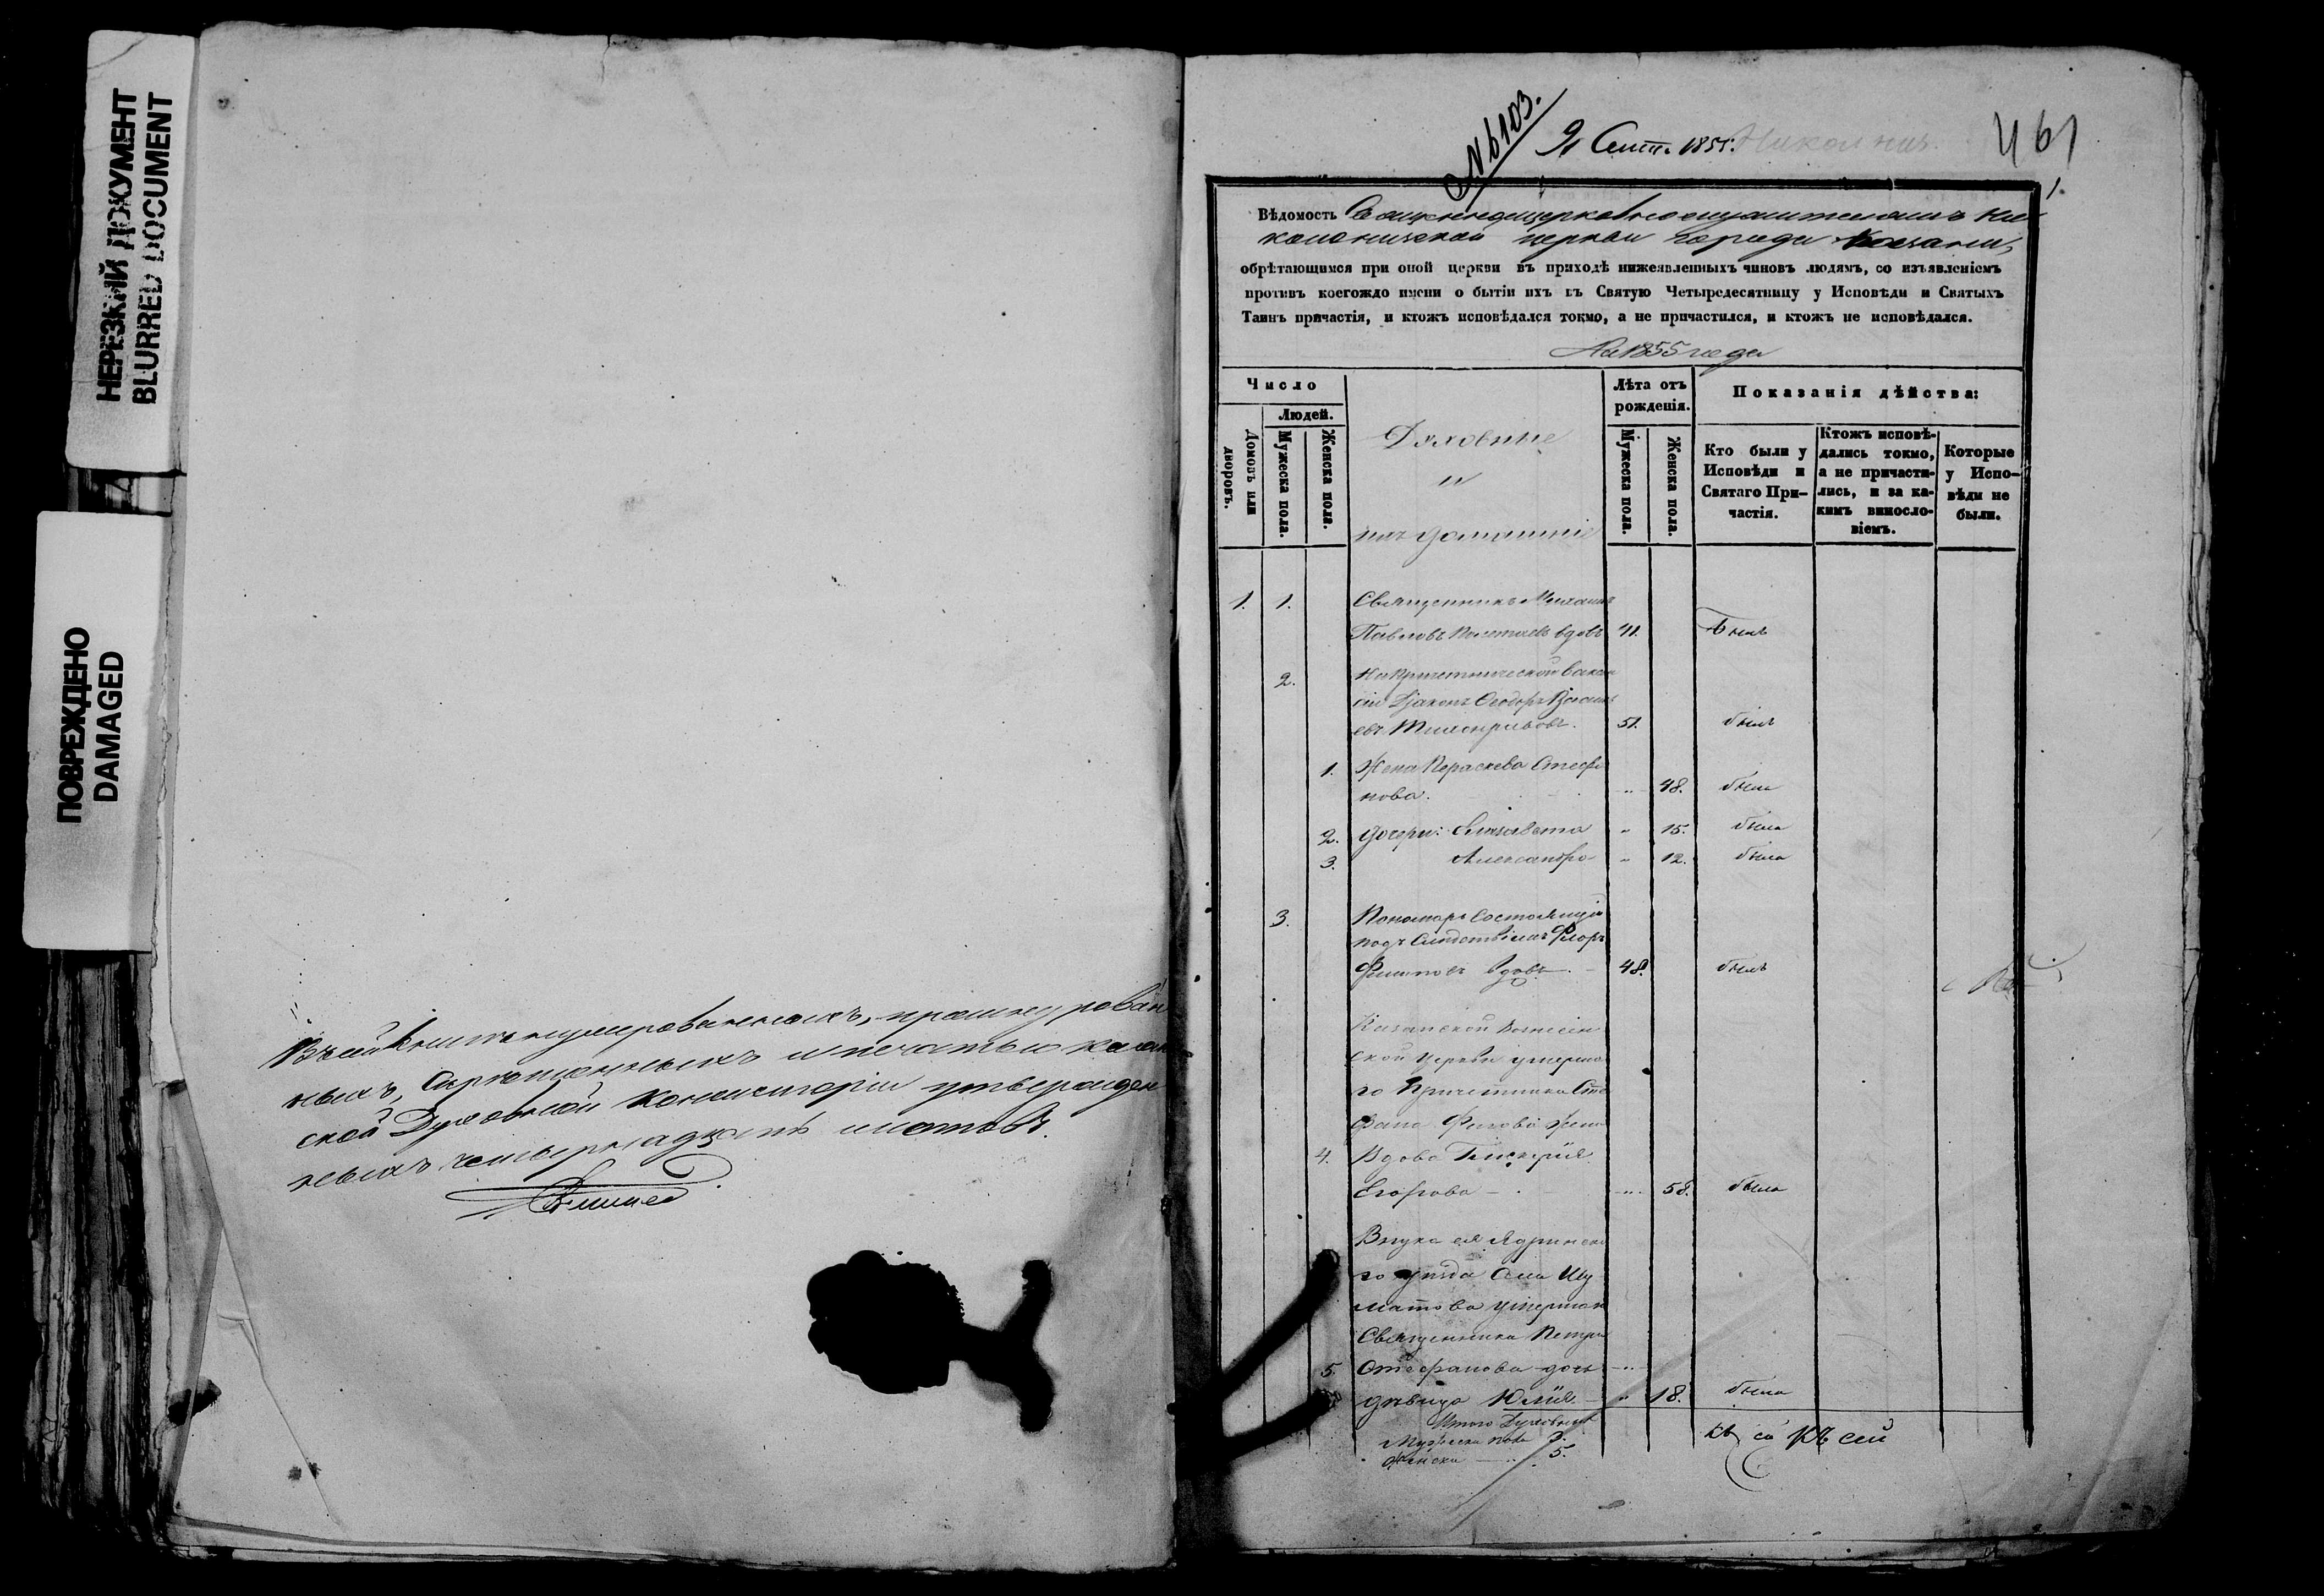 НЕРЕЗКИЙ ДОКУМЕНТ
BLURRED DOCUMENT
ПОВРЕЖДЕНО
DAMAGED
Въ сей книгѣ нумерованныхъ, прошнурован
ныхъ, скрѣпленныхъ и печатью Казан
ской Духовной Консисторіи утвержден
ныхъ четырнадцать листовъ.
№ 6103.
9 Сент. 1855.
461
1.
Вѣдомость Священноцерковнослужителямъ Ни
церкви города Казани,
обрѣтающимся при оной церкви въ приходѣ нижеявленныхъ чиновъ людямъ, со изъявленіемъ
противъ коегождо имени о бытіи ихъ въ Святую Четыредесятницу у Исповѣди и Святыхъ
Таинъ причастія, и ктожъ исповѣдался токмо, а не причастился, и ктожъ не исповѣдался.
На 1855 года
Число
Людей.
Домовъ или дворовъ.
Мужеска пола.
Женска пола.
Духовные
и
ихъ домашніе
Лѣта отъ рожденія.
Мужеска пола.
Женска пола.
Показанія дѣйства:
Кто были у Исповѣди и Святаго Причастія.
Ктожъ исповѣдались токмо, а не причастились, и за какимъ винословіемъ.
Которые у Исповѣди не были.
1. 1. Священникъ Михаилъ
Павловъ вдовъ 41. Былъ
2. На Причетнической вакан
сіи Діаконъ Ѳеодоръ Василь
евъ 51. былъ
1. Жена Параскева Стефа
нова. 48. была
2. Дочери: Елизавета 15. была
3. Александра 12. была
3. Пономарь состоящій
подъ слѣдствіемъ Флоръ
Филиповъ вдовъ 48. былъ
Казанской Вознесен
ской церкви умерша
го Причетника Сте
фана жена
4. Вдова Гликерія
Егорова 58. была
Внука ея Ядринска
го уѣзда села Шу
матова умершаго
Священника Петра
5. Стефанова дочь
дѣвица Юлія 18. была
Итого Духовныхъ
Мужеска пола 3.
Женска 5.